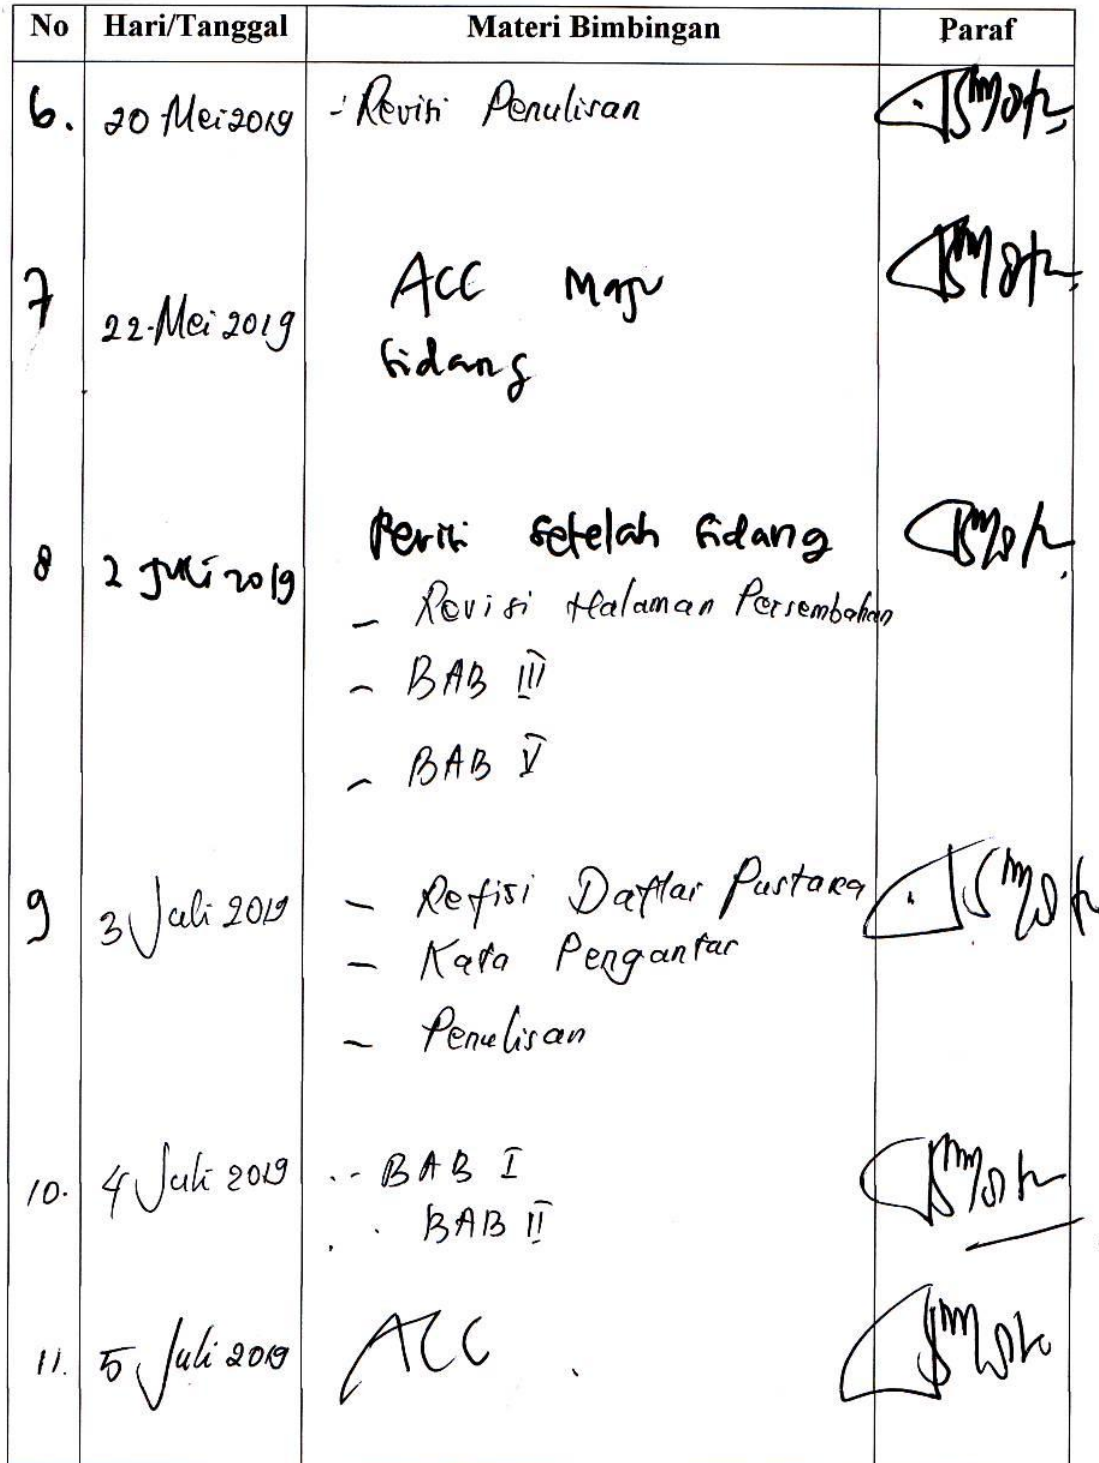 No Hari/Tanggal Materi Bimbingan Paraf
6. 20 Mei 2019 - Revisi Penulisan
7 22-Mei 2019 ACC Maju
Sidang
8 2 Juli 2019 Revisi setelah Sidang
- Revisi Halaman Persembahan
- BAB III
- BAB V
9 3 Juli 2019 - Refisi Daftar Pustaka
- Kata Pengantar
- Penulisan
10. 4 Juli 2019 - BAB I
BAB II
11. 5 Juli 2019 ACC